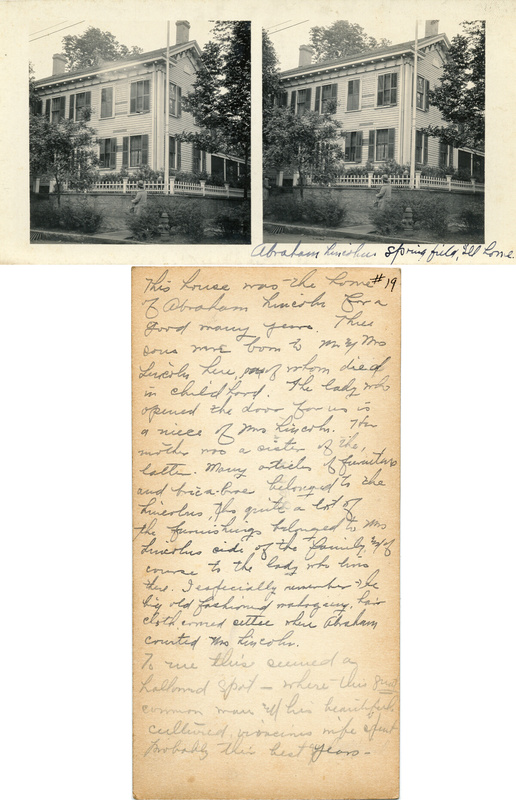 Abraham Lincolns Springfield, Ill home.
#19
This house was the home
of Abraham Lincoln for a
good many years. Three
sons were born to Mr & Mrs
Lincoln here, of whom died
in childhood. The lady who
opened the door for us is
a niece of Mrs Lincoln. Her
mother was a sister of the
latter. Many articles of furniture
and bric-a-brac belonged to the
Lincolns, tho quite a lot of
the furnishings belonged to Mrs
Lincolns side of the family & of
course to the lady who lives
there. I especially remember the
big old fashioned mahogany, hair
cloth covered settee where Abraham
courted Mrs Lincoln.
To me this seemed a
hallowed spot — where this great
common man & his beautiful
cultured, vivacious wife spent
probably their best years—